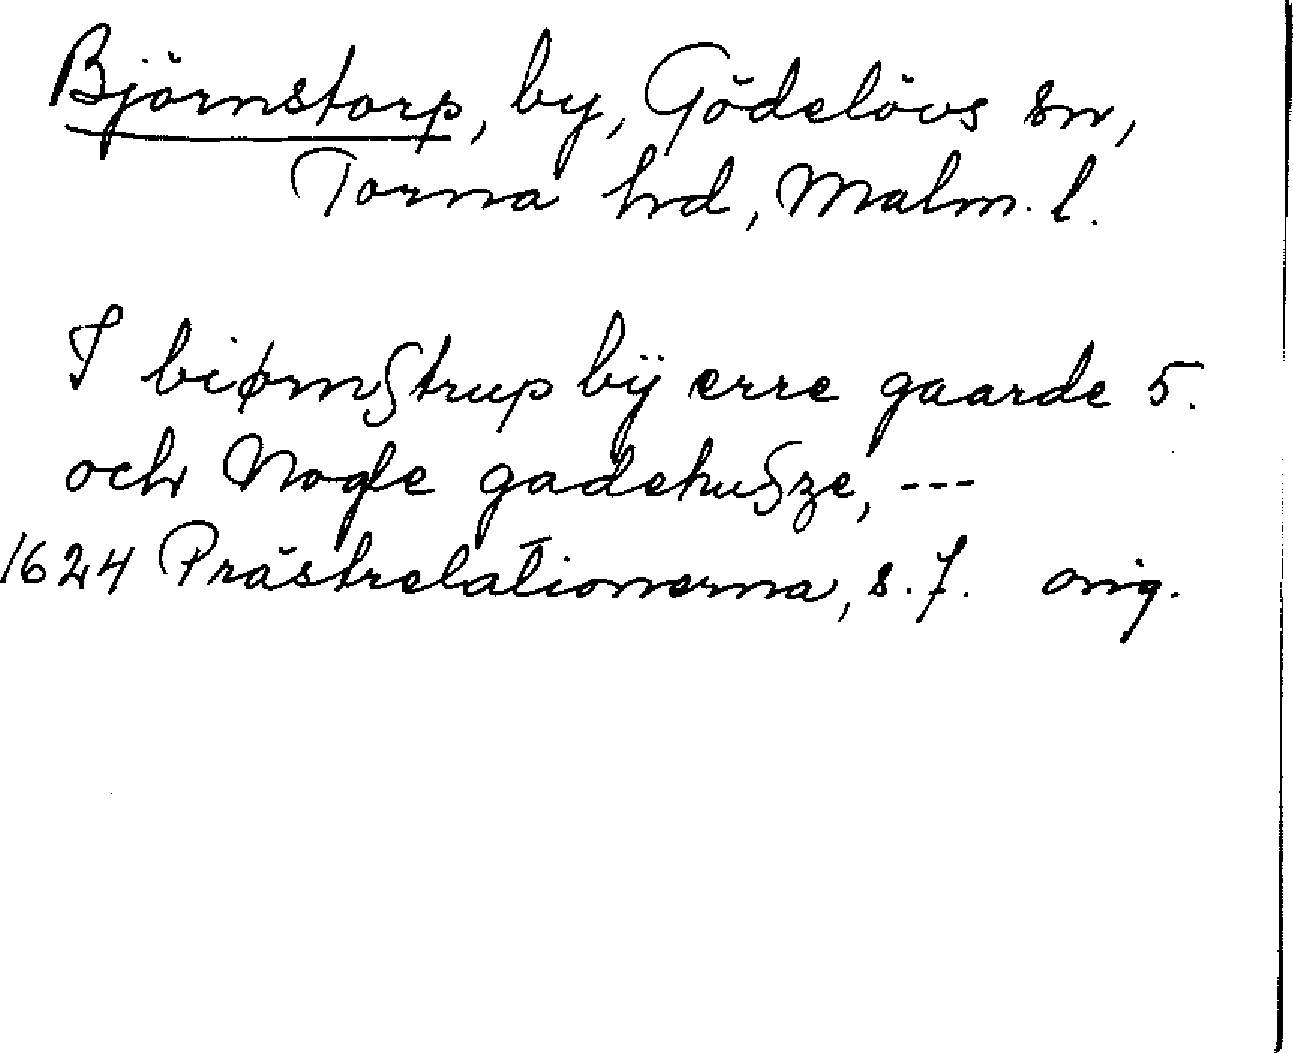 Björnstorp, by, Gödelövs sn,
Torna hd, Malm. l.
I biørnstrup bÿ erre gaarde 5.
och Nogle gadehusze, ---
1624 Prästrelationerna, s. 7. orig.